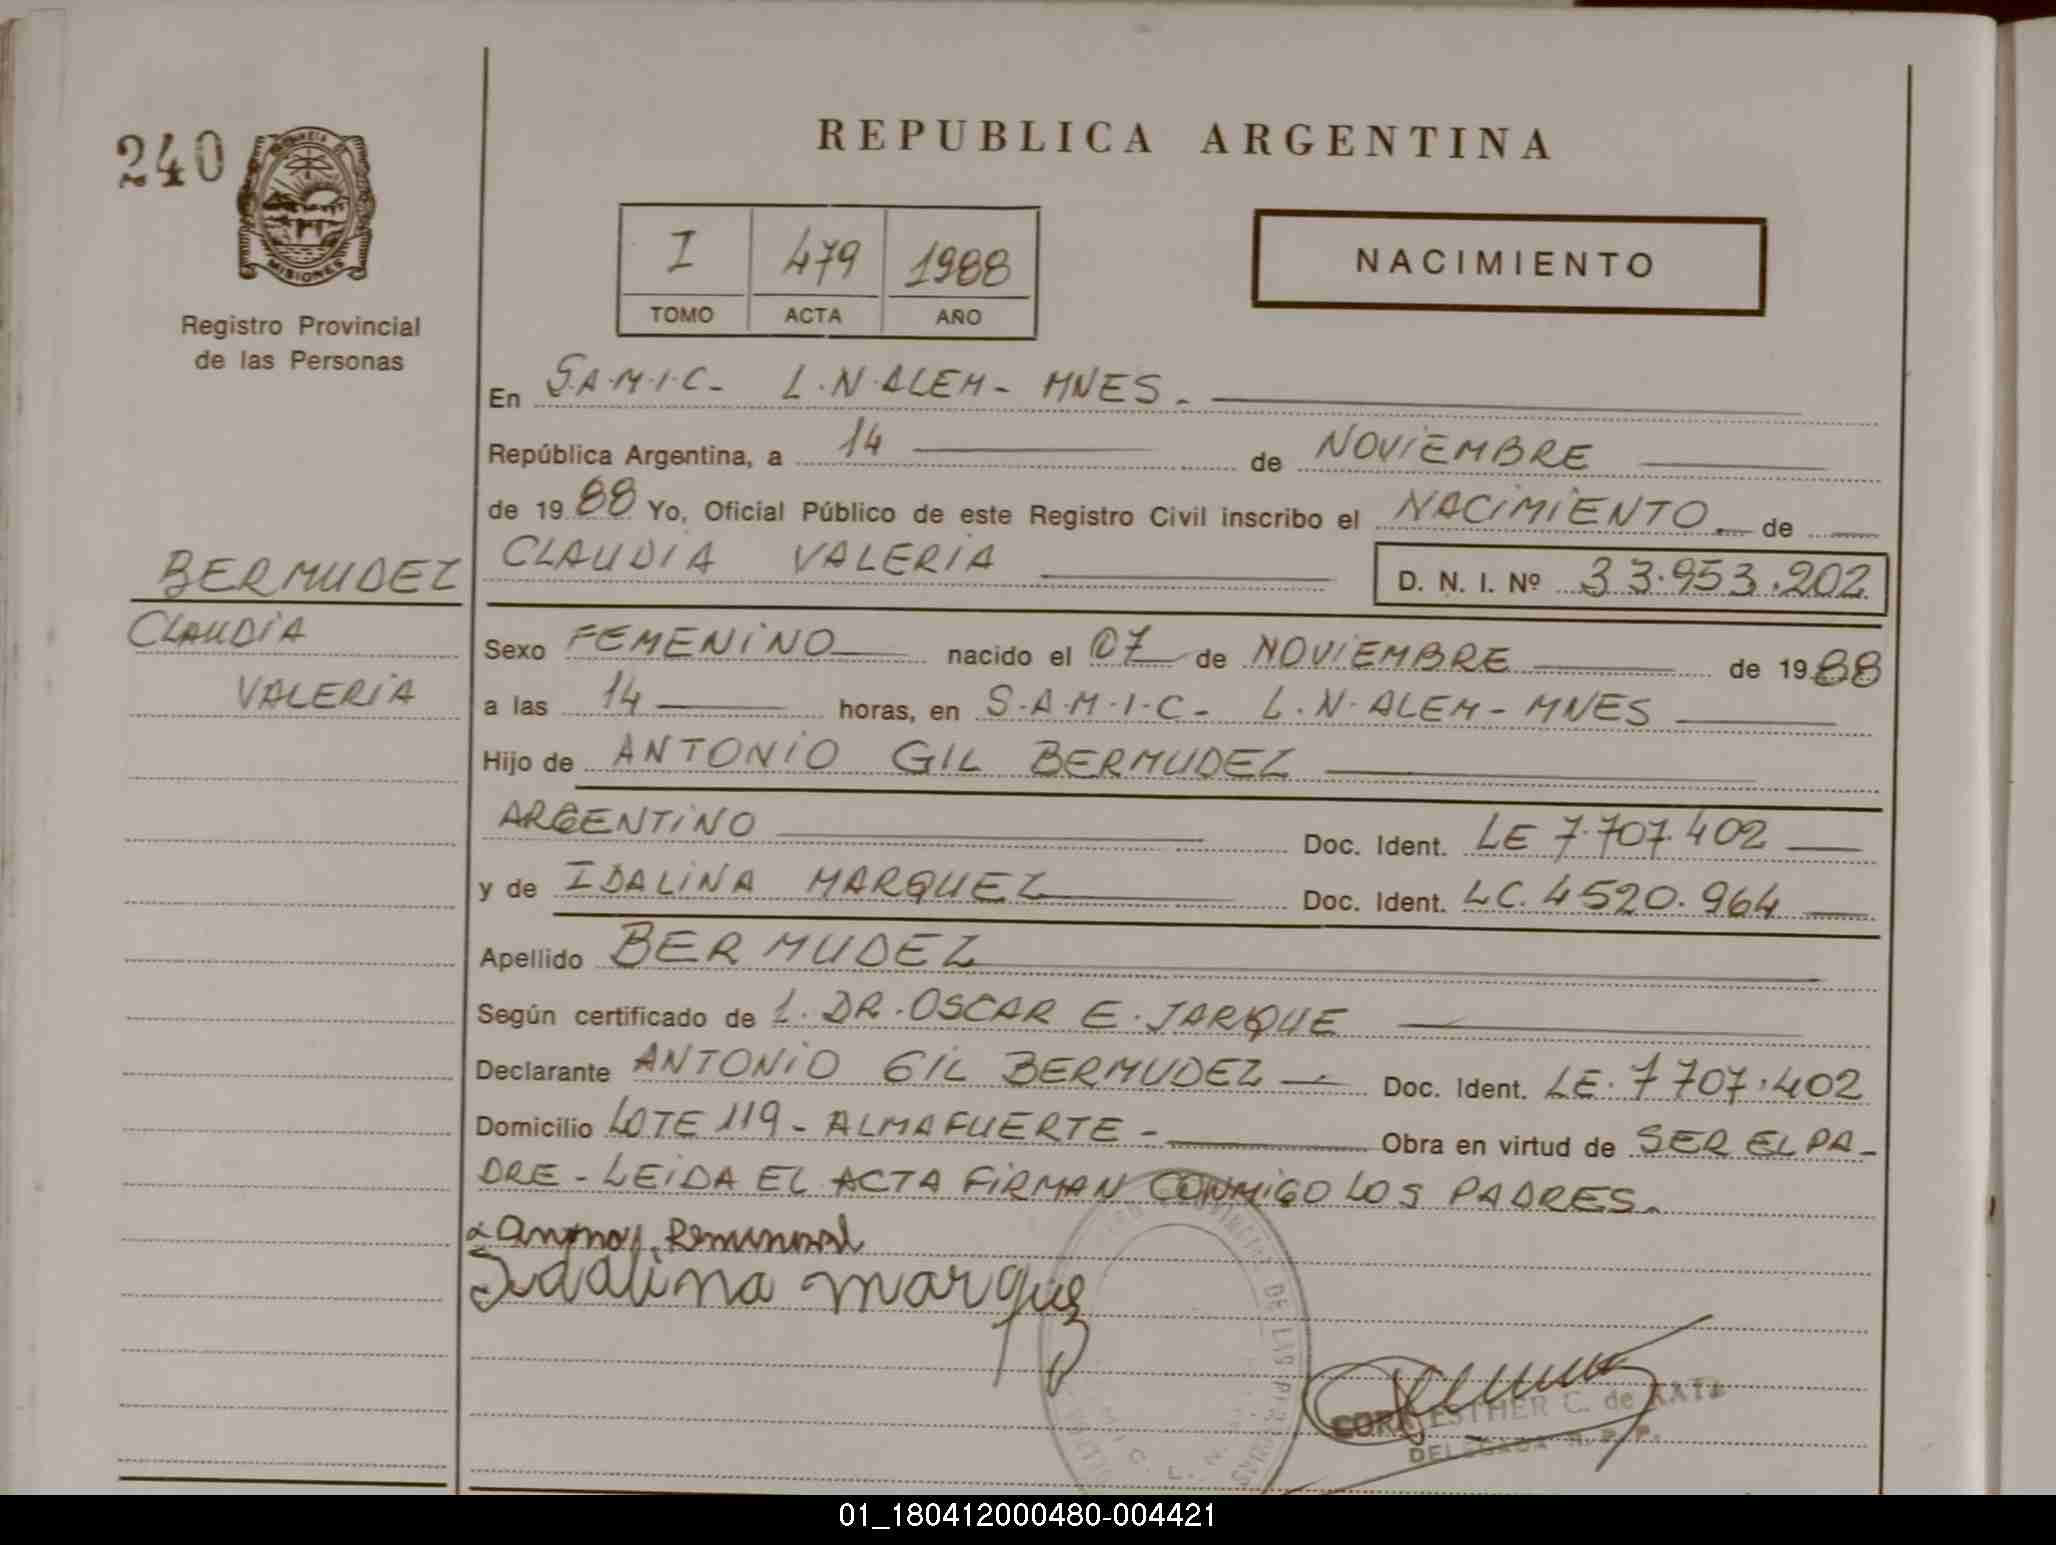 240
MISIONES
Registro Provincial
de las Personas
REPUBLICA ARGENTINA
I 479 1988
TOMO ACTA AÑO
NACIMIENTO
En S.A.M.I.C- L.N.ALEM- MNES.
República Argentina, a 14 de NOVIEMBRE
de 1988 Yo, Oficial Público de este Registro Civil inscribo el NACIMIENTO de
CLAUDIA VALERIA D. N. I. Nº 33.953.202
BERMUDEZ
CLAUDIA
VALERIA
Sexo FEMENINO nacido el 07 de NOVIEMBRE de 1988
a las 14 horas, en S.A.M.I.C- L.N.ALEM- MNES
Hijo de ANTONIO GIL BERMUDEZ
ARGENTINO Doc. Ident. LE 7.707.402
y de IDALINA MARQUEZ Doc. Ident. LC. 4520.964
Apellido BERMUDEZ
Según certificado de 1. DR. OSCAR E. JARQUE
Declarante ANTONIO GIL BERMUDEZ Doc. Ident. LE. 7 707.402
Domicilio LOTE 119- ALMAFUERTE- Obra en virtud de SER EL PA-
DRE- LEIDA EL ACTA FIRMAN CONMIGO LOS PADRES.
Idalina marquez
DE LAS PERSONAS
CORA ESTHER C. de KATZ
DELEGADA R. P. P.
01_180412000480-004421